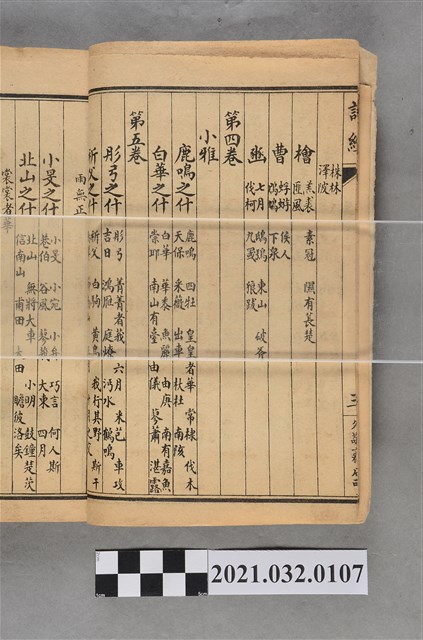 詩經
株林
澤陂
檜 羔裘 素冠 隰有萇楚
匪風
曹 蜉蝣 候人
鳲鳩 下泉
豳 七月 鴟鴞 東山 破斧
伐柯 九罭 狼跋
第四卷
小雅
鹿鳴之什 鹿鳴 四牡 皇皇者華 常棣 伐木
天保 采薇 出車 杕杜 南陔
白華之什 白華 華黍 魚麗 由庚 南有嘉魚
崇邱 南山有臺 由儀 蓼蕭 湛露
第五卷
彤弓之什 彤弓 菁菁者莪 六月 采芑 車攻
吉日 鴻雁 庭燎 沔水 鶴鳴
祈父之什 祈父 白駒 黃鳥 我行其野 斯干
雨無正
小旻之什 小旻 小宛 小弁 巧言 何人斯
巷伯 谷風 蓼莪 大東 四月
北山之什 北山 無將大車 小明 鼓鐘 楚茨
信南山 甫田 大田 瞻彼洛矣
裳裳者華
2021.032.0107